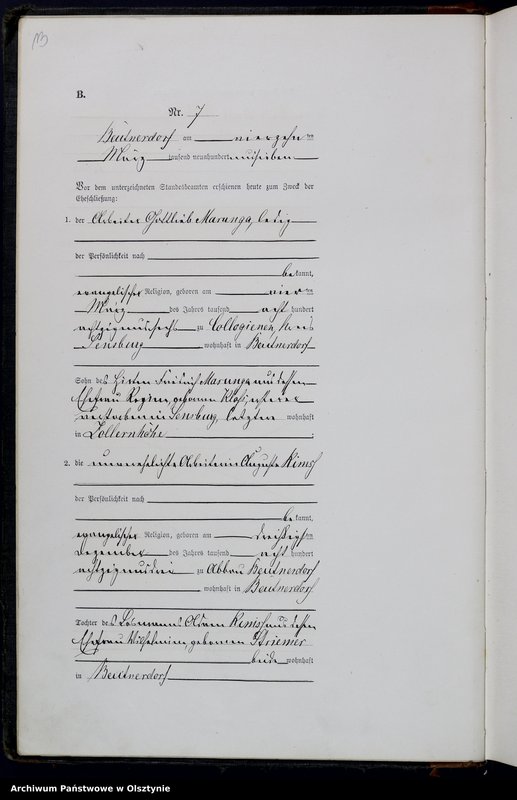 B.
Nr. 7
Beutnerdorf am vierzehn ten
März tausend neunhundert und sieben
Vor dem unterzeichneten Standesbeamten erschienen heute zum Zweck der
Eheschließung:
1. der Arbeiter Gottlieb Marunga, ledig
der Persönlichkeit nach
bekannt,
evangelischer Religion, geboren am vier ten
März des Jahres tausend acht hundert
achtzig und sechs zu Collogienen, Kreis
Sensburg, wohnhaft in Beutnerdorf
Sohn des Hirten Marunga und dessen
Ehefrau Regine, geborenen
verstorben in Sensburg, letztere wohnhaft
in Zollernhöhe.
2. die unverehelichte Arbeiterin Auguste Kimst
der Persönlichkeit nach
bekannt,
evangelischer Religion, geboren am dreißigsten
Dezember des Jahres tausend acht hundert
achtzig und drei zu Abbau Beutnerdorf
wohnhaft in Beutnerdorf
Tochter des Losmanns Adam Kimst und dessen
Ehefrau Wilhelmine, geborenen Striemer
beide wohnhaft
in Beutnerdorf
Archiwum Państwowe w Olsztynie